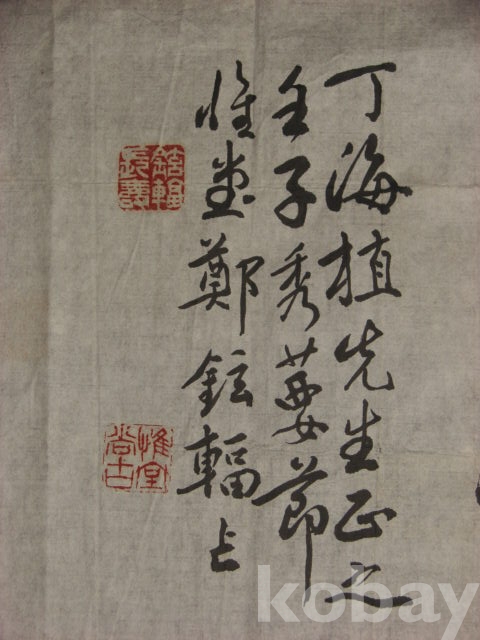 丁海植先生正之
壬子秀葽節
惟堂鄭鉉輻上
惟堂
尚古
kobay